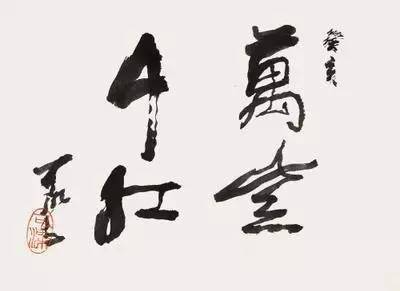 癸亥
萬紫
千紅